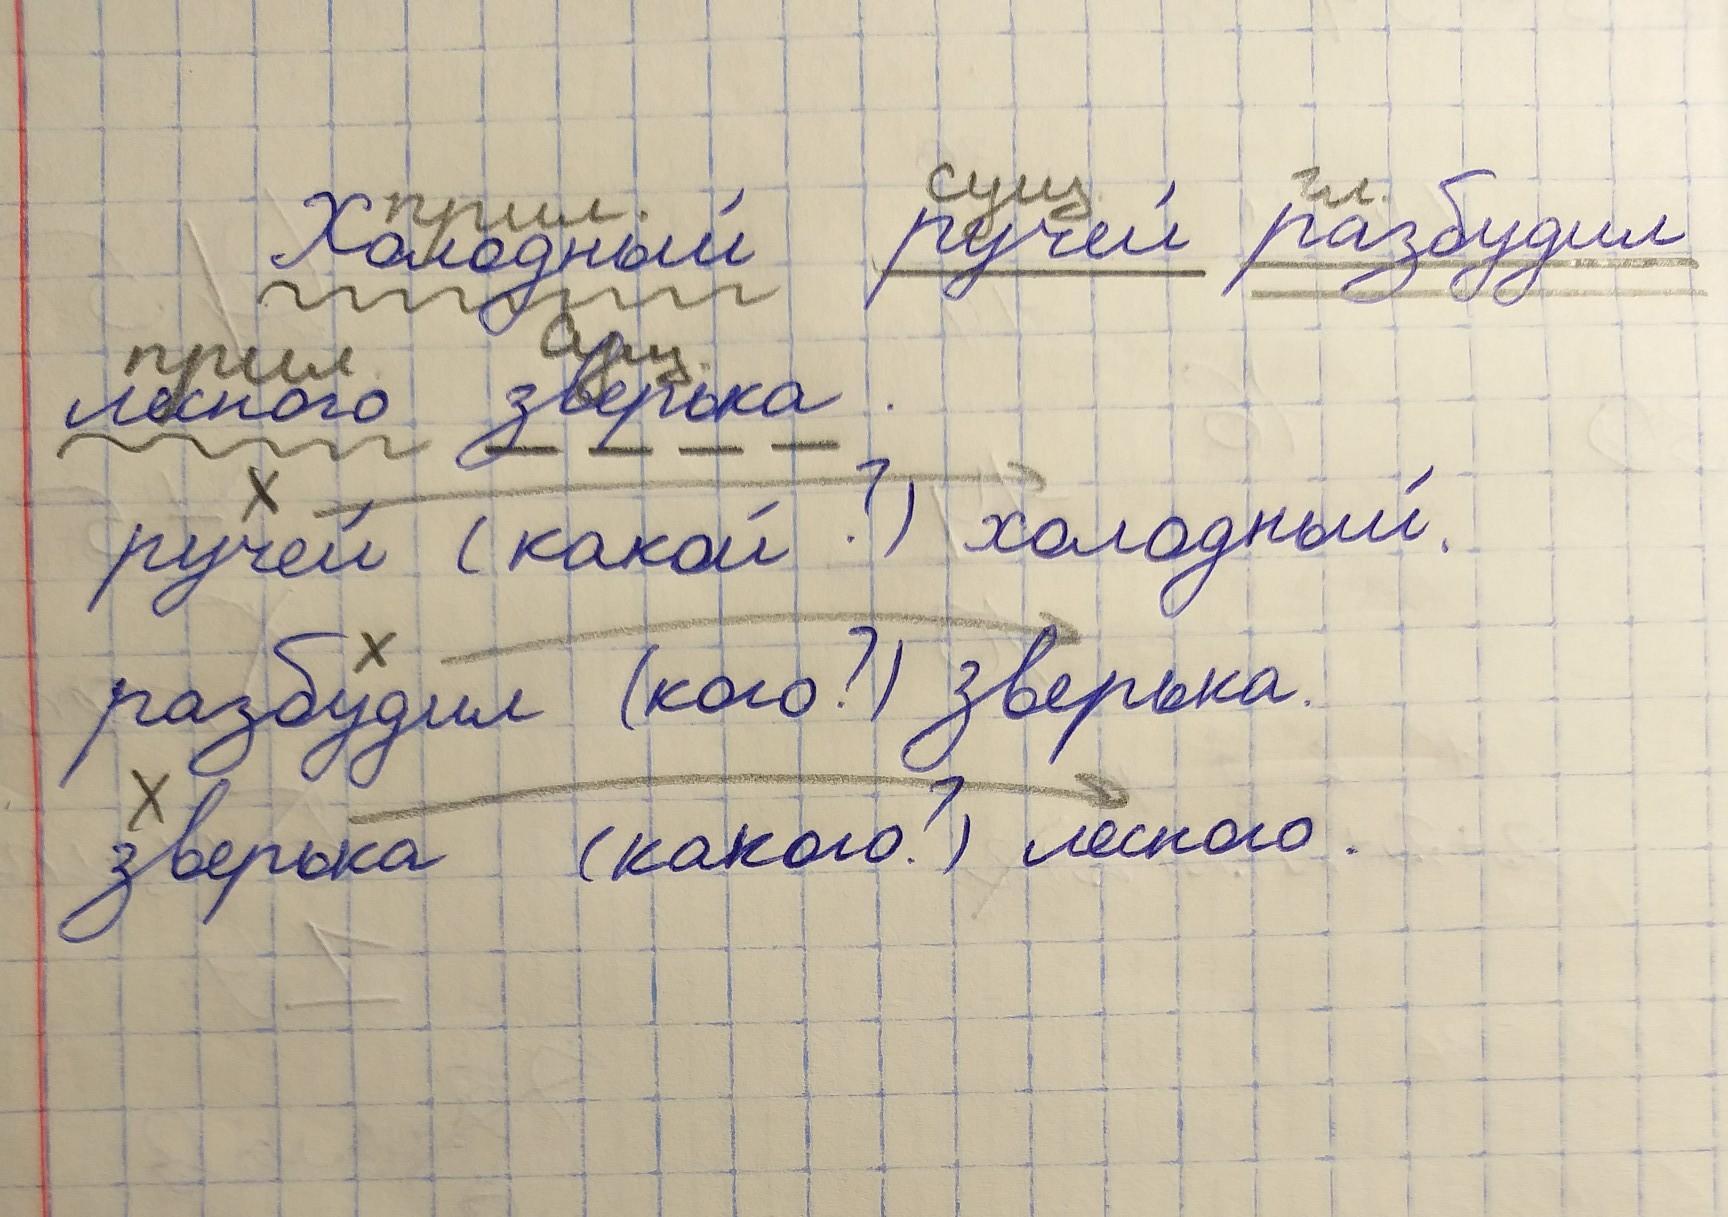 прил. сущ. гл.
Холодный ручей разбудил
прил. сущ.
лесного зверька.
х
ручей (какой?) холодный.
х
разбудил (кого?) зверька.
х
зверька (какого?) лесного.